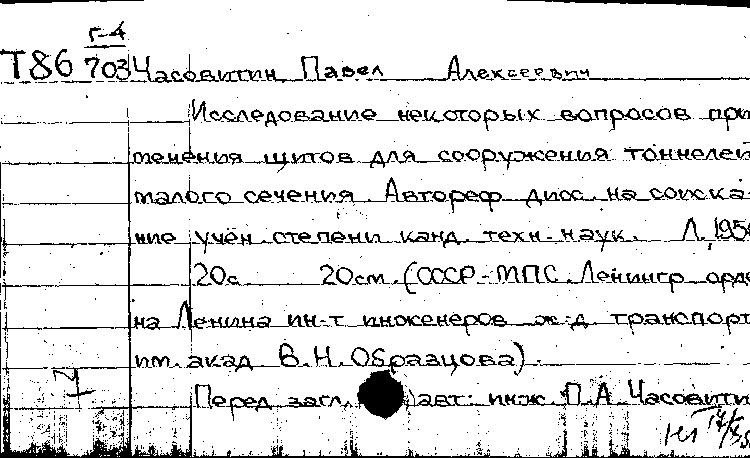 Г-4
Т86 703 Часовитин, Павел Алексеевич
Исследование некоторых вопросов при
менения щитов для сооружения тоннелей
малого сечения. Автореф. дисс. на соиска-
ние учён. степени канд. техн. наук. Л. 195
20с. 20см. (СССР-МПС. Ленингр. орде
на Ленина ин-т инженеров ж.-д. транспорт
им. акад. В.Н. Образцова).
Перед загл. авт: инж. П.А. Часовити